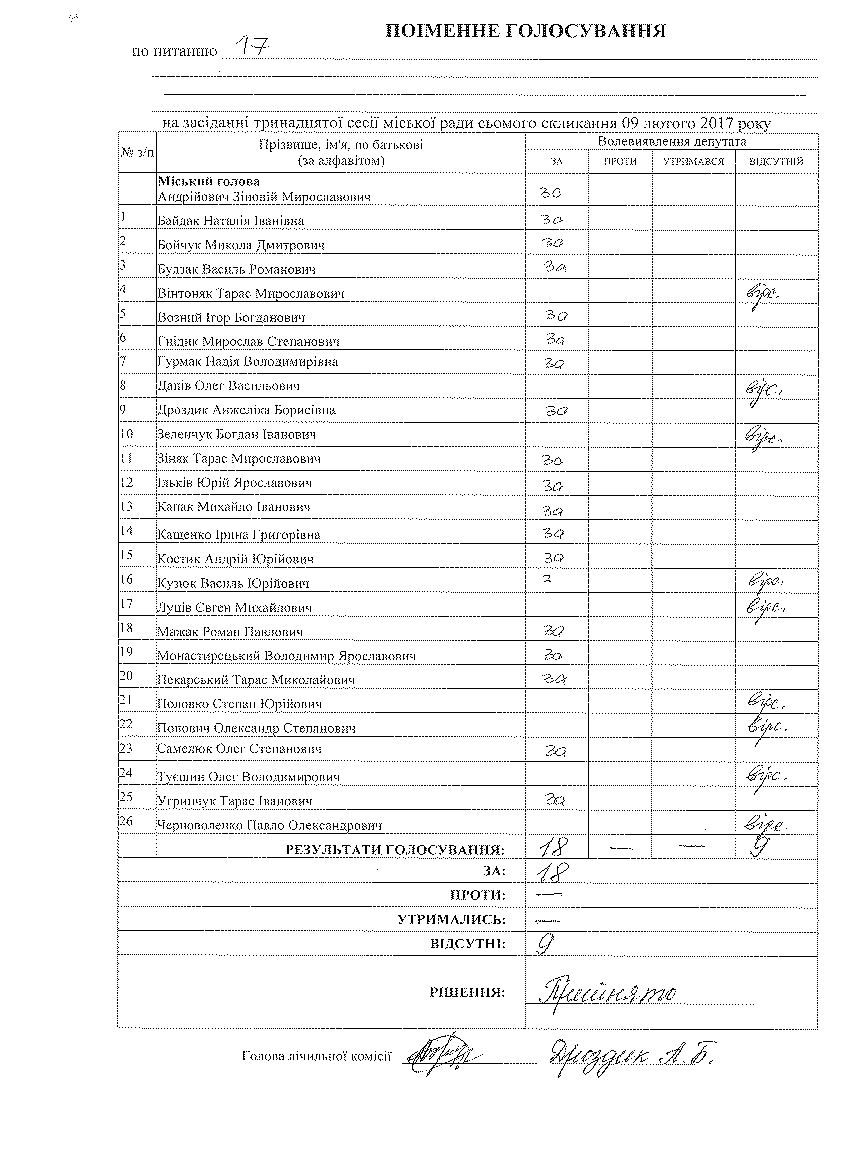 ПОІМЕННЕ ГОЛОСУВАННЯ
по питанню 17
на засіданні тринадцятої сесії міської ради сьомого скликання 09 лютого 2017 року
№ з/п Прізвище, ім'я, по батькові (за алфавітом) Волевиявлення депутата
ЗА ПРОТИ УТРИМАВСЯ ВІДСУТНІЙ
Міський голова
Андрійович Зіновій Мирославович за
1 Байдак Наталія Іванівна за
2 Бойчук Микола Дмитрович за
3 Будзак Василь Романович за
4 Вінтоняк Тарас Мирославович відс.
5 Возний Ігор Богданович за
6 Гнідик Мирослав Степанович за
7 Гурмак Надія Володимирівна за
8 Данів Олег Васильович відс.
9 Дроздик Анжеліка Борисівна за
10 Зеленчук Богдан Іванович відс.
11 Зіняк Тарас Мирославович за
12 Ільків Юрій Ярославович за
13 Капак Михайло Іванович за
14 Кащенко Ірина Григорівна за
15 Костик Андрій Юрійович за
16 Кузюк Василь Юрійович з відс.
17 Луців Євген Михайлович відс.
18 Мажак Роман Павлович за
19 Монастирецький Володимир Ярославович за
20 Пекарський Тарас Миколайович за
21 Половко Степан Юрійович відс.
22 Попович Олександр Степанович відс.
23 Самелюк Олег Степанович за
24 Туєшин Олег Володимирович відс.
25 Угринчук Тарас Іванович за
26 Черноволенко Павло Олександрович відс.
РЕЗУЛЬТАТИ ГОЛОСУВАННЯ: 18 — — 9
ЗА: 18
ПРОТИ: —
УТРИМАЛИСЬ: —
ВІДСУТНІ: 9
РІШЕННЯ: Прийнято
Голова лічильної комісії Дроздик А.Б.